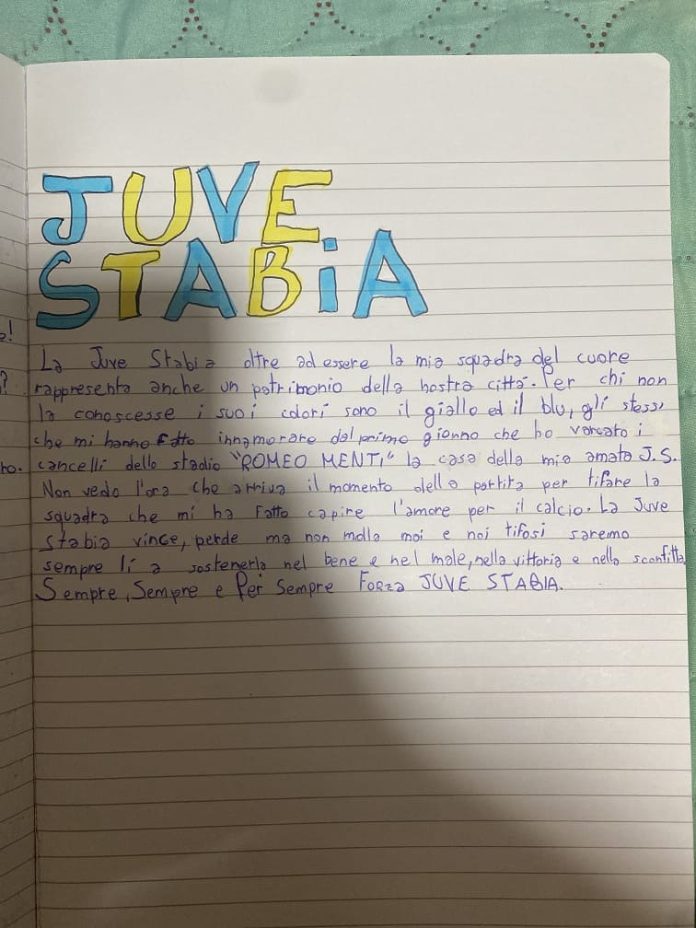 JUVE
STABiA
e!
La Juve Stabia oltre ad essere la mia squadra del cuore
?
rappresenta anche un patrimonio della nostra città. Per chi non
la conoscesse i suoi colori sono il giallo ed il blu, gli stessi
che mi hanno fatto innamorare dal primo giorno che ho varcato i
ho. cancelli dello stadio "ROMEO MENTI" la casa della mia amata J.S.
Non vedo l'ora che arriva il momento della partita per tifare la
squadra che mi ha fatto capire l'amore per il calcio. La Juve
Stabia vince, perde ma non molla mai e noi tifosi saremo
sempre lì a sostenerla nel bene e nel male, nella vittoria e nella sconfitta
Sempre, Sempre e Per Sempre FORZA JUVE STABIA.